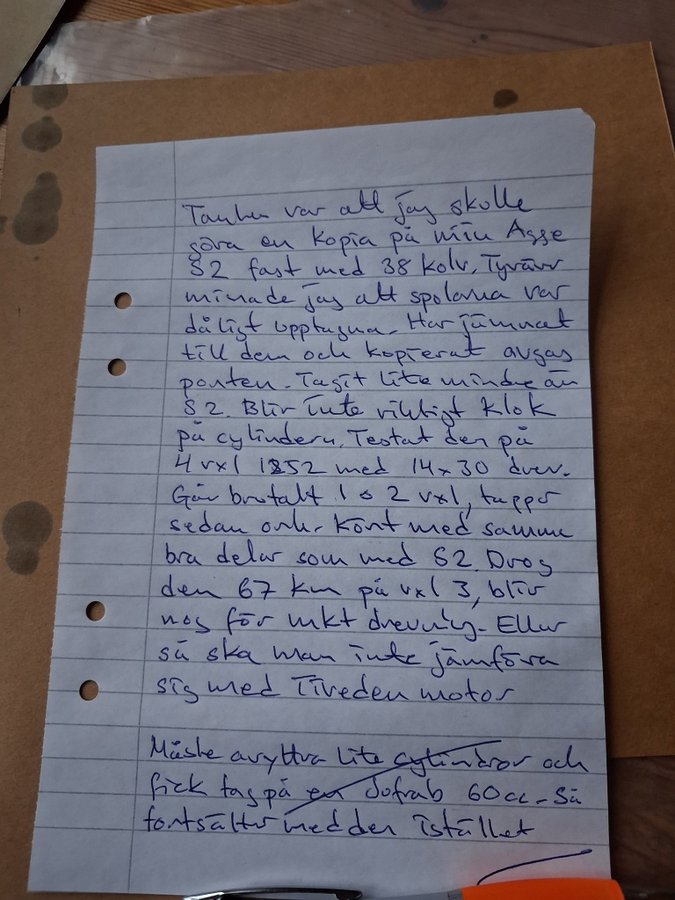 Tanken var att jag skulle
göra en kopia på min Agge
S2 fast med 38 kolv. Tyvärr
minade jag att spolarna var
dåligt upptagna. Har jämnat
till dem och kopierat avgas
porten. Tagit lite mindre än
S2. Blir inte riktigt klok
på cylindern. Testat den på
4 vxl 1252 med 14x30 drev.
Går brutalt 1 o 2 vxl, tappar
sedan ork. Kört med samma
bra delar som med S2. Drog
den 67 km på vxl 3, blir
nog för mkt drevning. Eller
så ska man inte jämföra
sig med Tiveden motor
Måste avyttra lite cylindrar och
fick tag på en Jofrab 60cc. Så
fortsätter med den istället